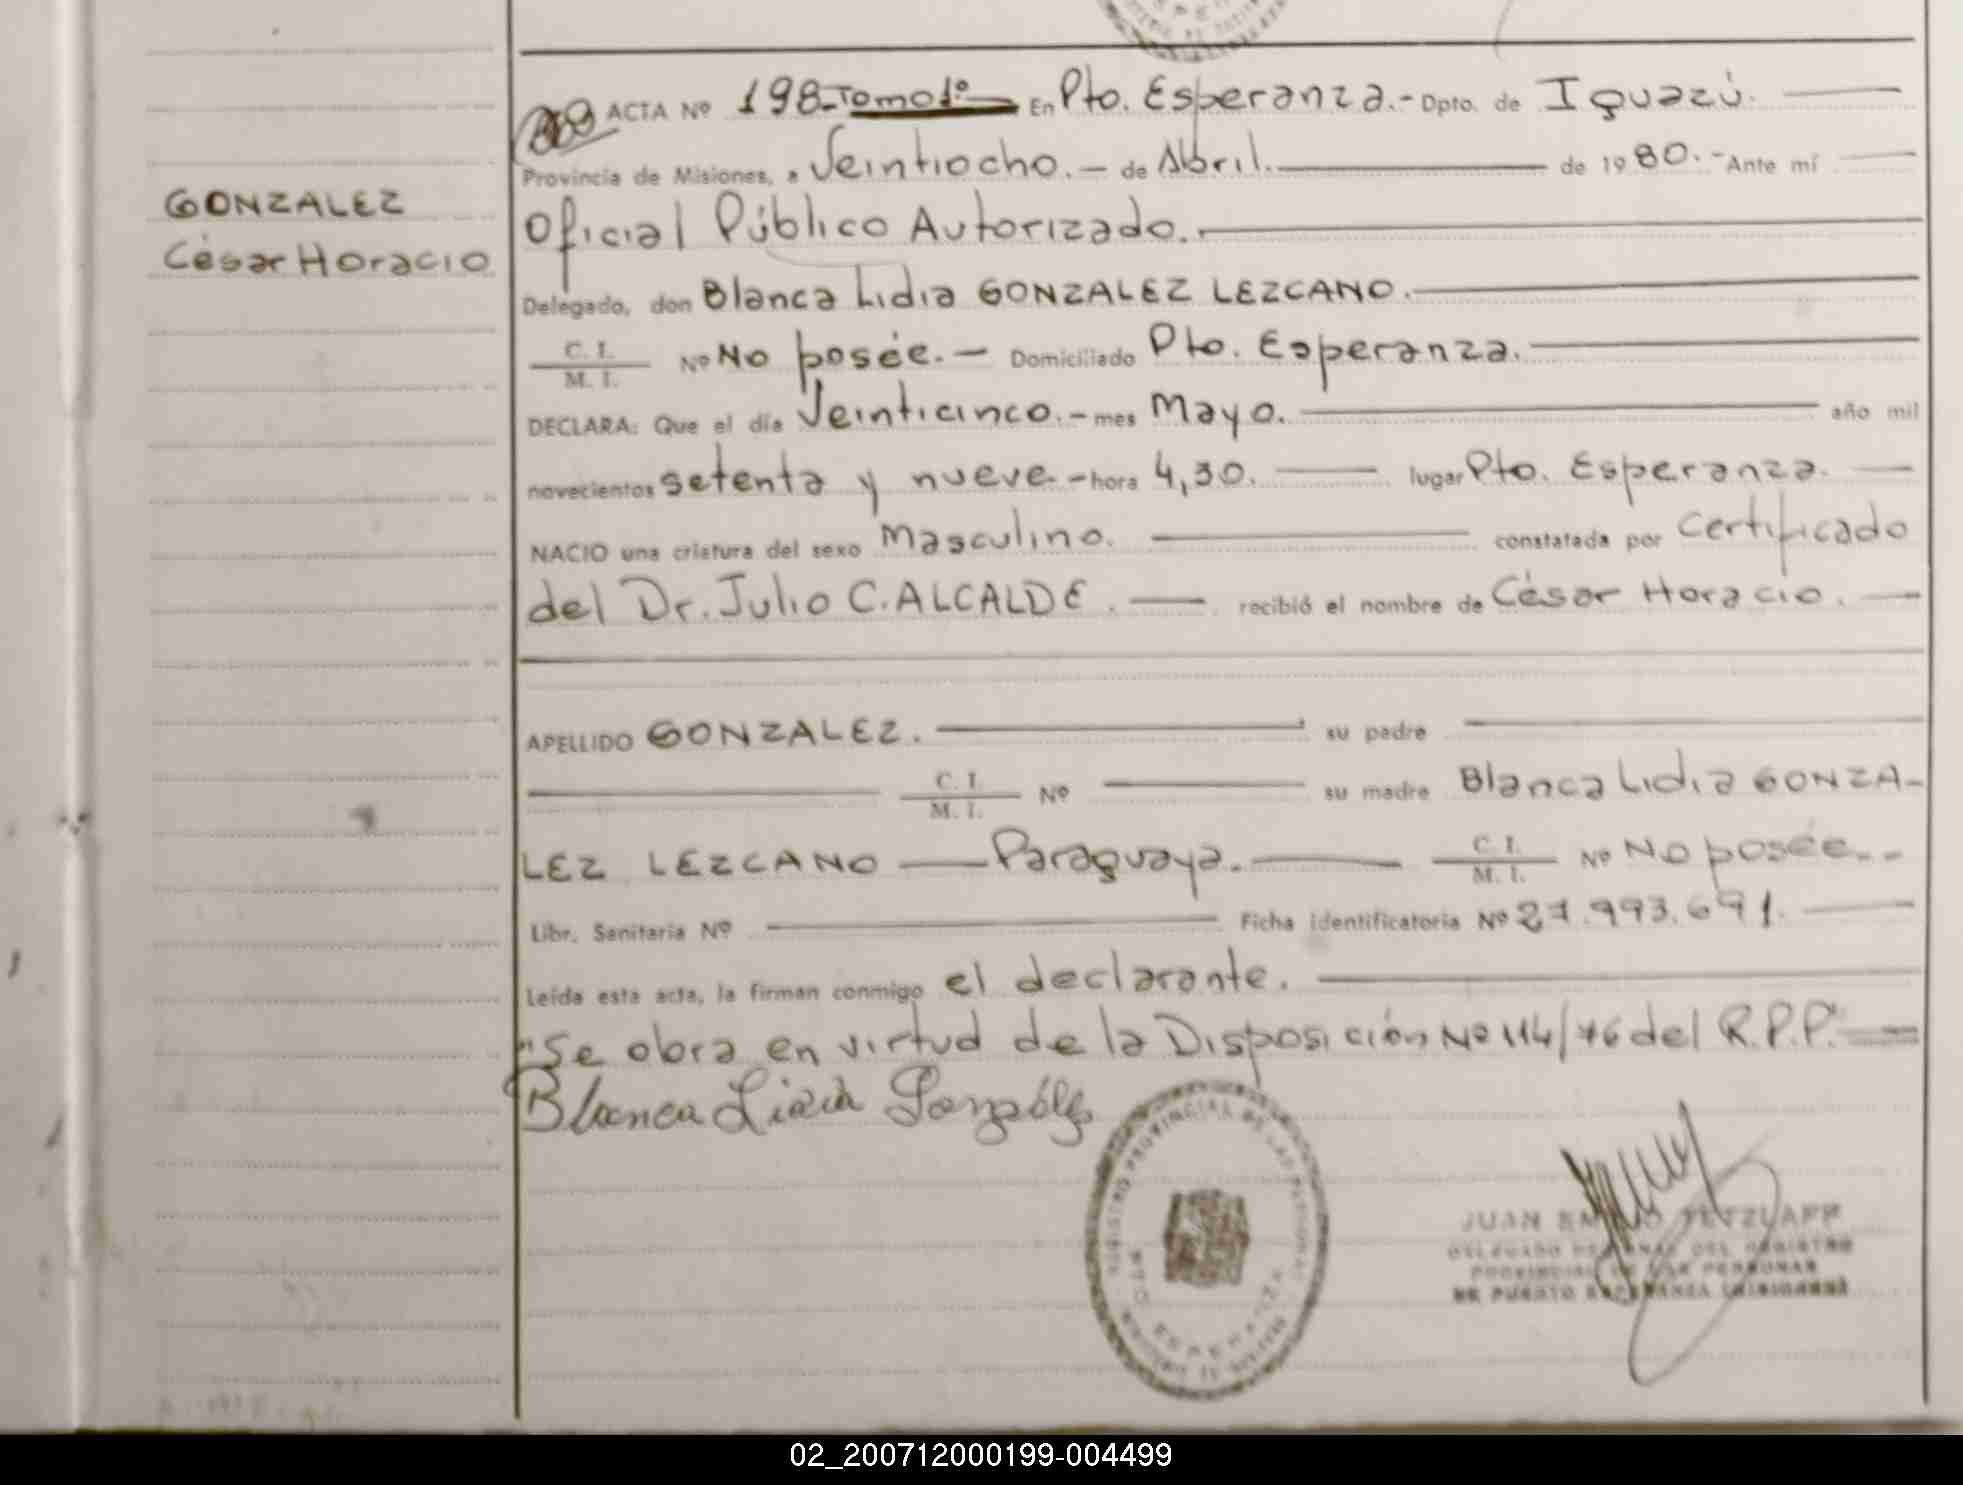 ACTA Nº 198-Tomo1º En Pto. Esperanza.- Dpto. de Iguazú.
Provincia de Misiones, a Veintiocho.- de Abril. de 1980.- Ante mí
GONZALEZ
Oficial Público Autorizado.
César Horacio
Delegado, don Blanca Lidia GONZALEZ LEZCANO.
C. I.
M. I.
Nº No posée.- Domiciliado Pto. Esperanza.
DECLARA: Que el día Veinticinco.- mes Mayo. año mil
novecientos setenta y nueve - hora 4,30. lugar Pto. Esperanza.
NACIO una criatura del sexo Masculino. constatada por Certificado
del Dr. Julio C. ALCALDE. recibió el nombre de César Horacio.
APELLIDO GONZALEZ. su padre
C. I.
M. I.
Nº su madre Blanca Lidia GONZA-
LEZ LEZCANO Paraguaya.
C. I.
M. I.
Nº No posée.-
Libr. Sanitaria Nº Ficha identificatoria Nº 27.993.691.
Leída esta acta, la firman conmigo el declarante.
"Se obra en virtud de la Disposición Nº 114/76 del R.P.P."
Blanca Lidia González
REGISTRO PROVINCIAL DE LAS PERSONAS
PTO ESPERANZA
JUAN
DELEGADO DEL REGISTRO
PROVINCIAL DE LAS PERSONAS
DE PUERTO ESPERANZA (MISIONES)
02_200712000199-004499